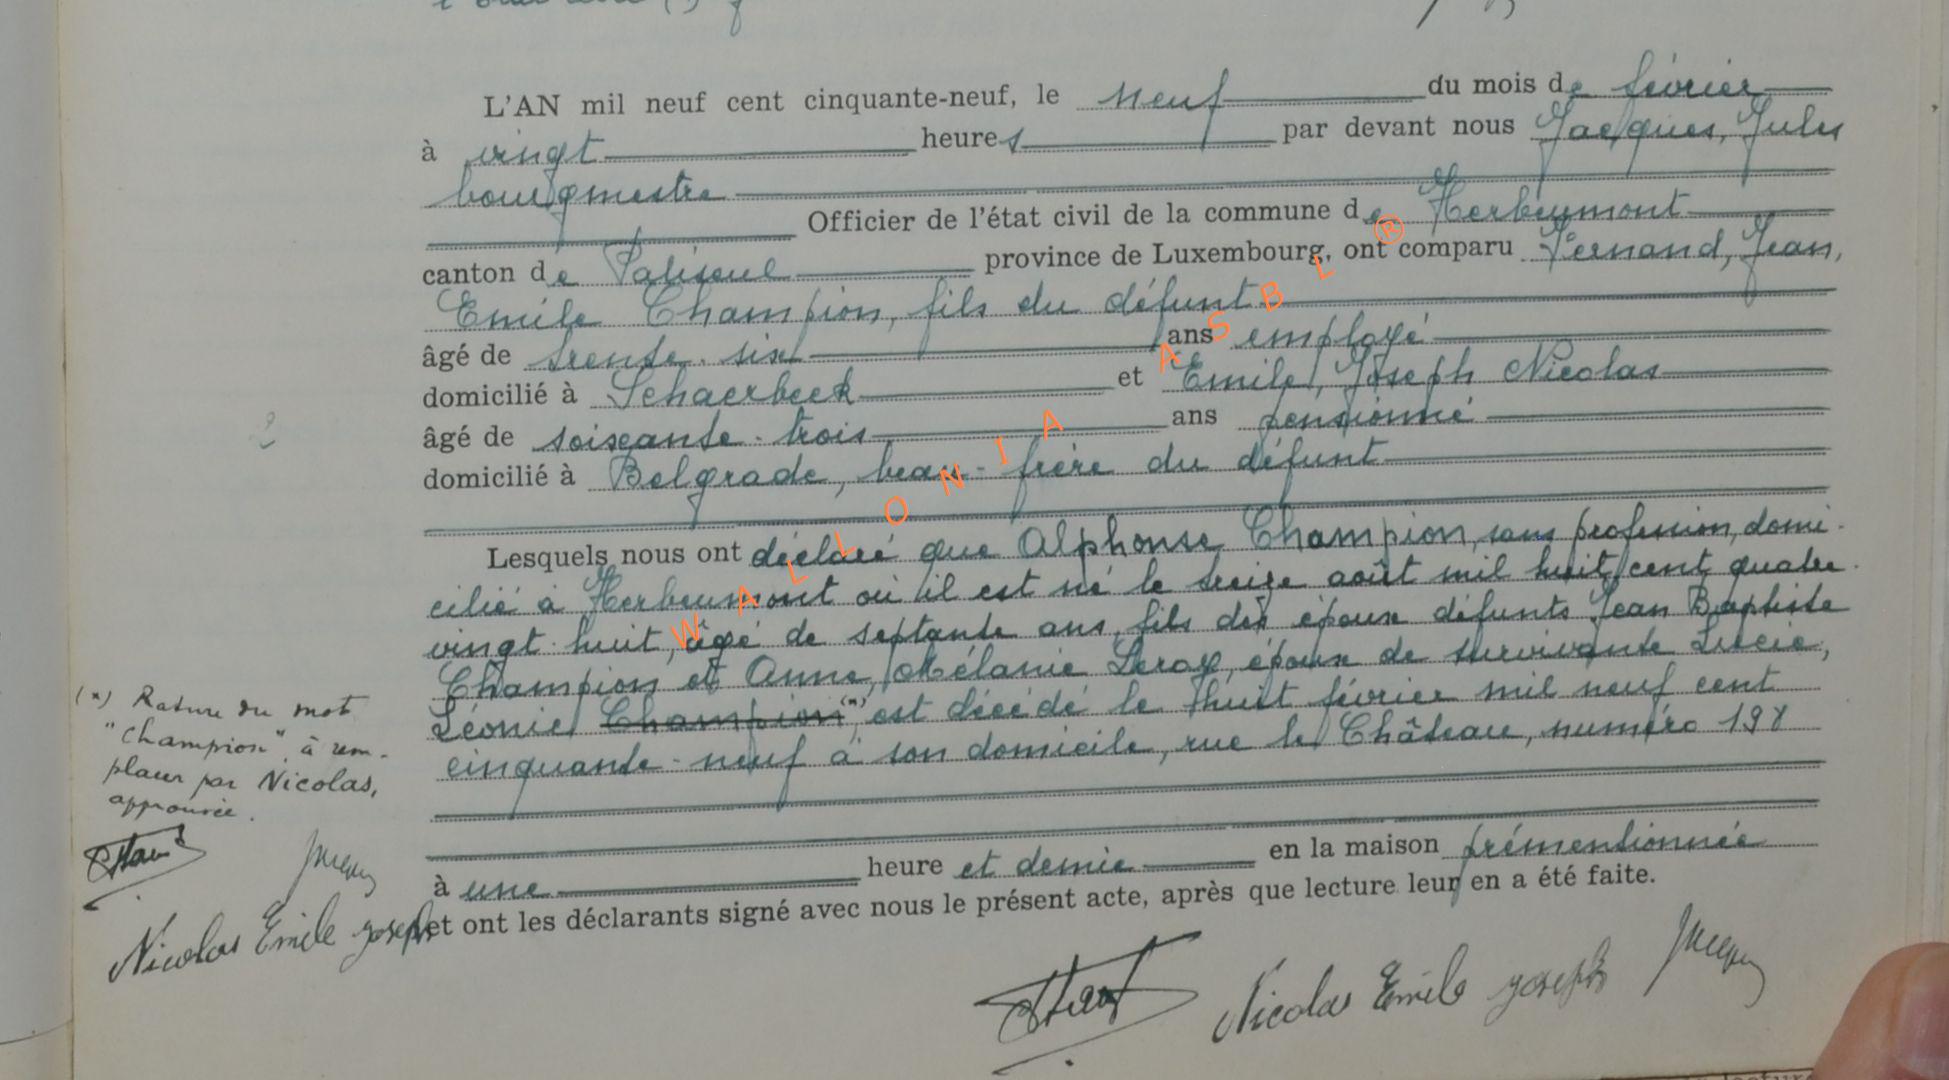 L'AN mil neuf cent cinquante-neuf, le neuf du mois de février
à vingt heures par devant nous Jacques, Jules
bourgmestre
Officier de l'état civil de la commune de Herbeumont
canton de Paliseul province de Luxembourg, ont comparu Fernand, Jean,
Emile Champion, fils du défunt
âgé de trente-six ans employé
domicilié à Schaerbeek et Emile, Joseph Nicolas
âgé de soixante-trois ans pensionné
domicilié à Belgrade, beau-frère du défunt
Lesquels nous ont déclaré que Alphonse Champion, sans profession, domi-
cilié à Herbeumont où il est né le seize août mil huit cent quatre
vingt huit, âgé de septante ans, fils des époux défunts Jean Baptiste
Champion et Anne, Mélanie Leroy, époux de survivante Lucie,
Léonie Champion (x), est décédé le huit février mil neuf cent
cinquante-neuf à son domicile, rue le Château, numéro 198
à une heure et demie en la maison prémentionnée
et ont les déclarants signé avec nous le présent acte, après que lecture leur en a été faite.
(x) Rature du mot
"Champion" à rem-
placer par Nicolas,
approuvée.
Jacques
Nicolas Emile Joseph
Nicolas Emile Joseph Jacques
2
WALLONIA ASBL ®